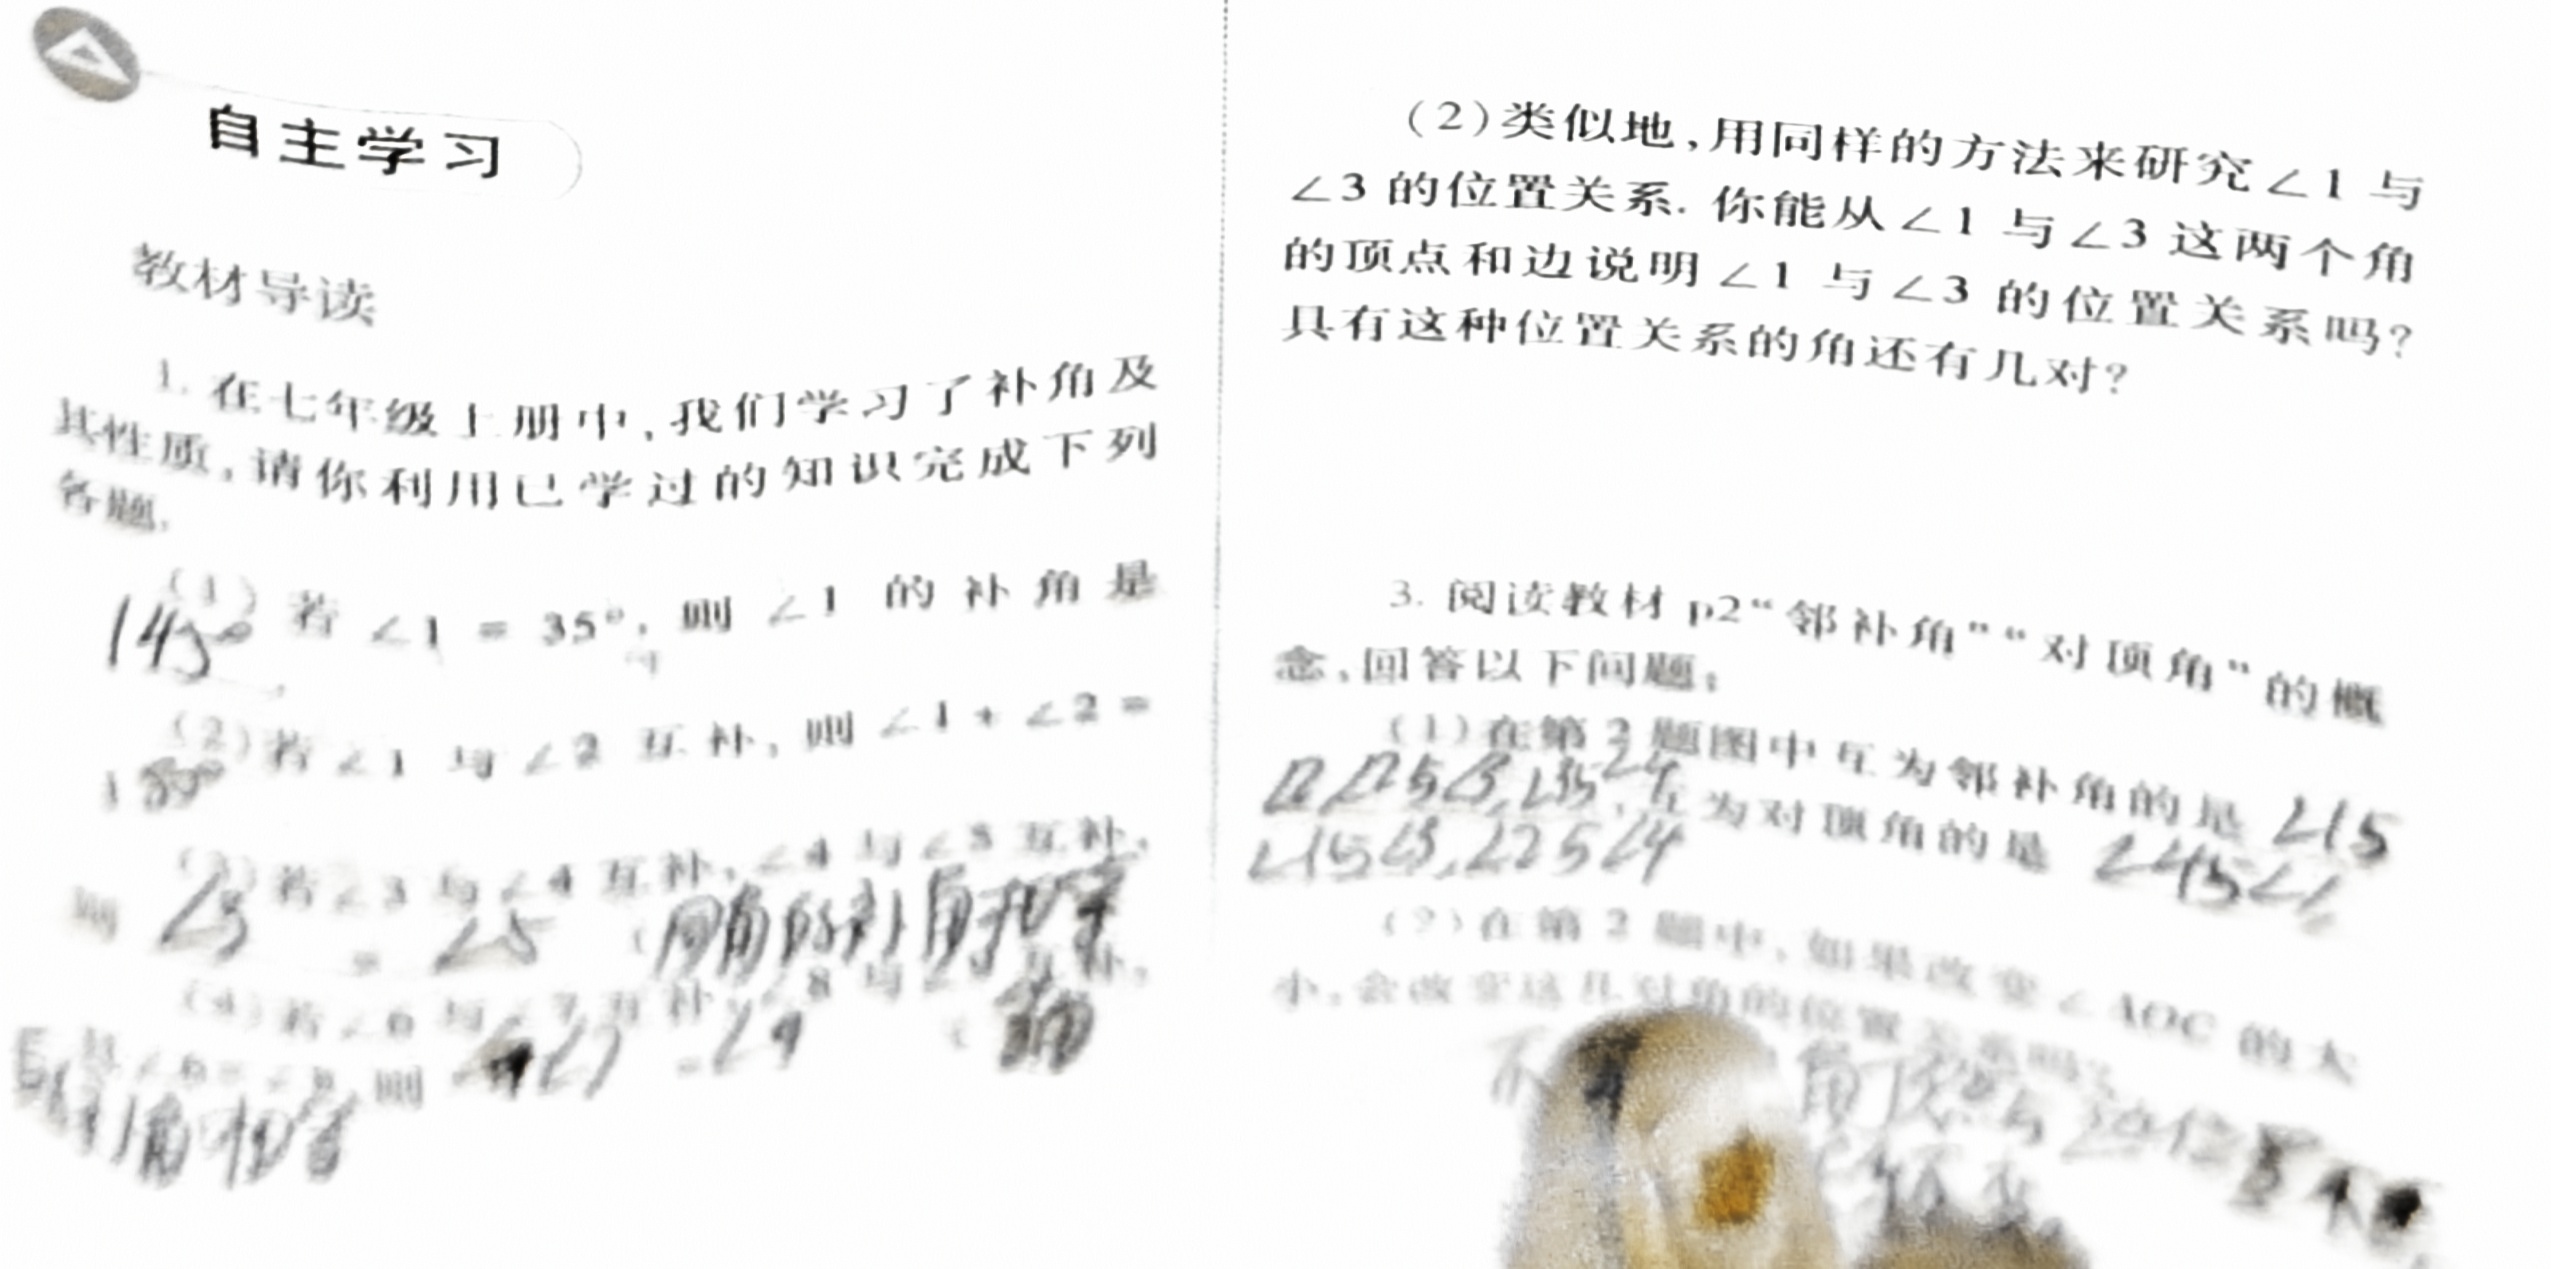 自主学习
教材导读
1. 在七年级上册中,我们学习了补角及
其性质,请你利用已学过的知识完成下列
各题.
(1) 若 ∠1 = 35°, 则 ∠1 的补角是
145°
(2) 若 ∠1 与 ∠2 互补, 则 ∠1 + ∠2 =
180°
(3) 若 ∠3 与 ∠4 互补, ∠4 与 ∠5 互补,
则 ∠3 = ∠5 (同角的补角相等
(4) 若 ∠6 与 ∠7 互补, ∠8 与 ∠9 互补,
且 ∠6 = ∠8, 则 ∠7 = ∠9 (
补角相等
(2)类似地,用同样的方法来研究∠1 与
∠3 的位置关系. 你能从∠1 与∠3 这两个角
的顶点和边说明∠1 与∠3 的位置关系吗?
具有这种位置关系的角还有几对?
3. 阅读教材 p2“邻补角”“对顶角”的概
念,回答以下问题:
(1)在第 2 题图中互为邻补角的是 ∠1与
∠2与∠3,∠3与∠4 ∠4与∠1
,互为对顶角的是
∠1与∠3,∠2与∠4
(2)在第 2 题中,如果改变∠AOC 的大
小,会改变这几对角的位置关系吗?
不 角顶点与边位置不